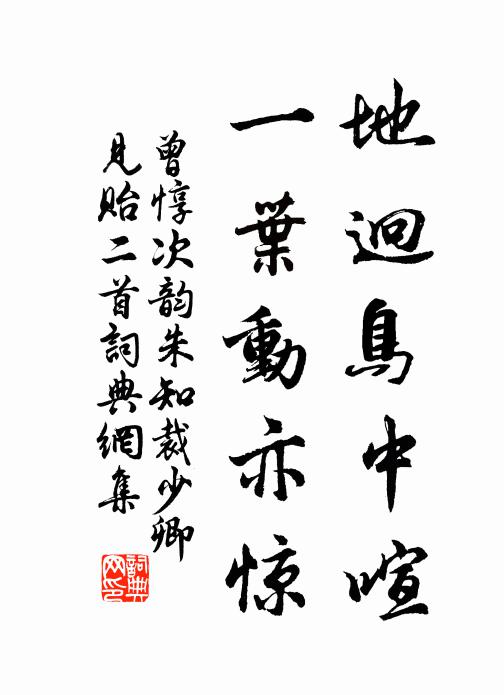 地迥鳥中喧
一葉動亦惊
曾惇次韵朱知裁少卿
見貽二首詞典網集
詞典网印